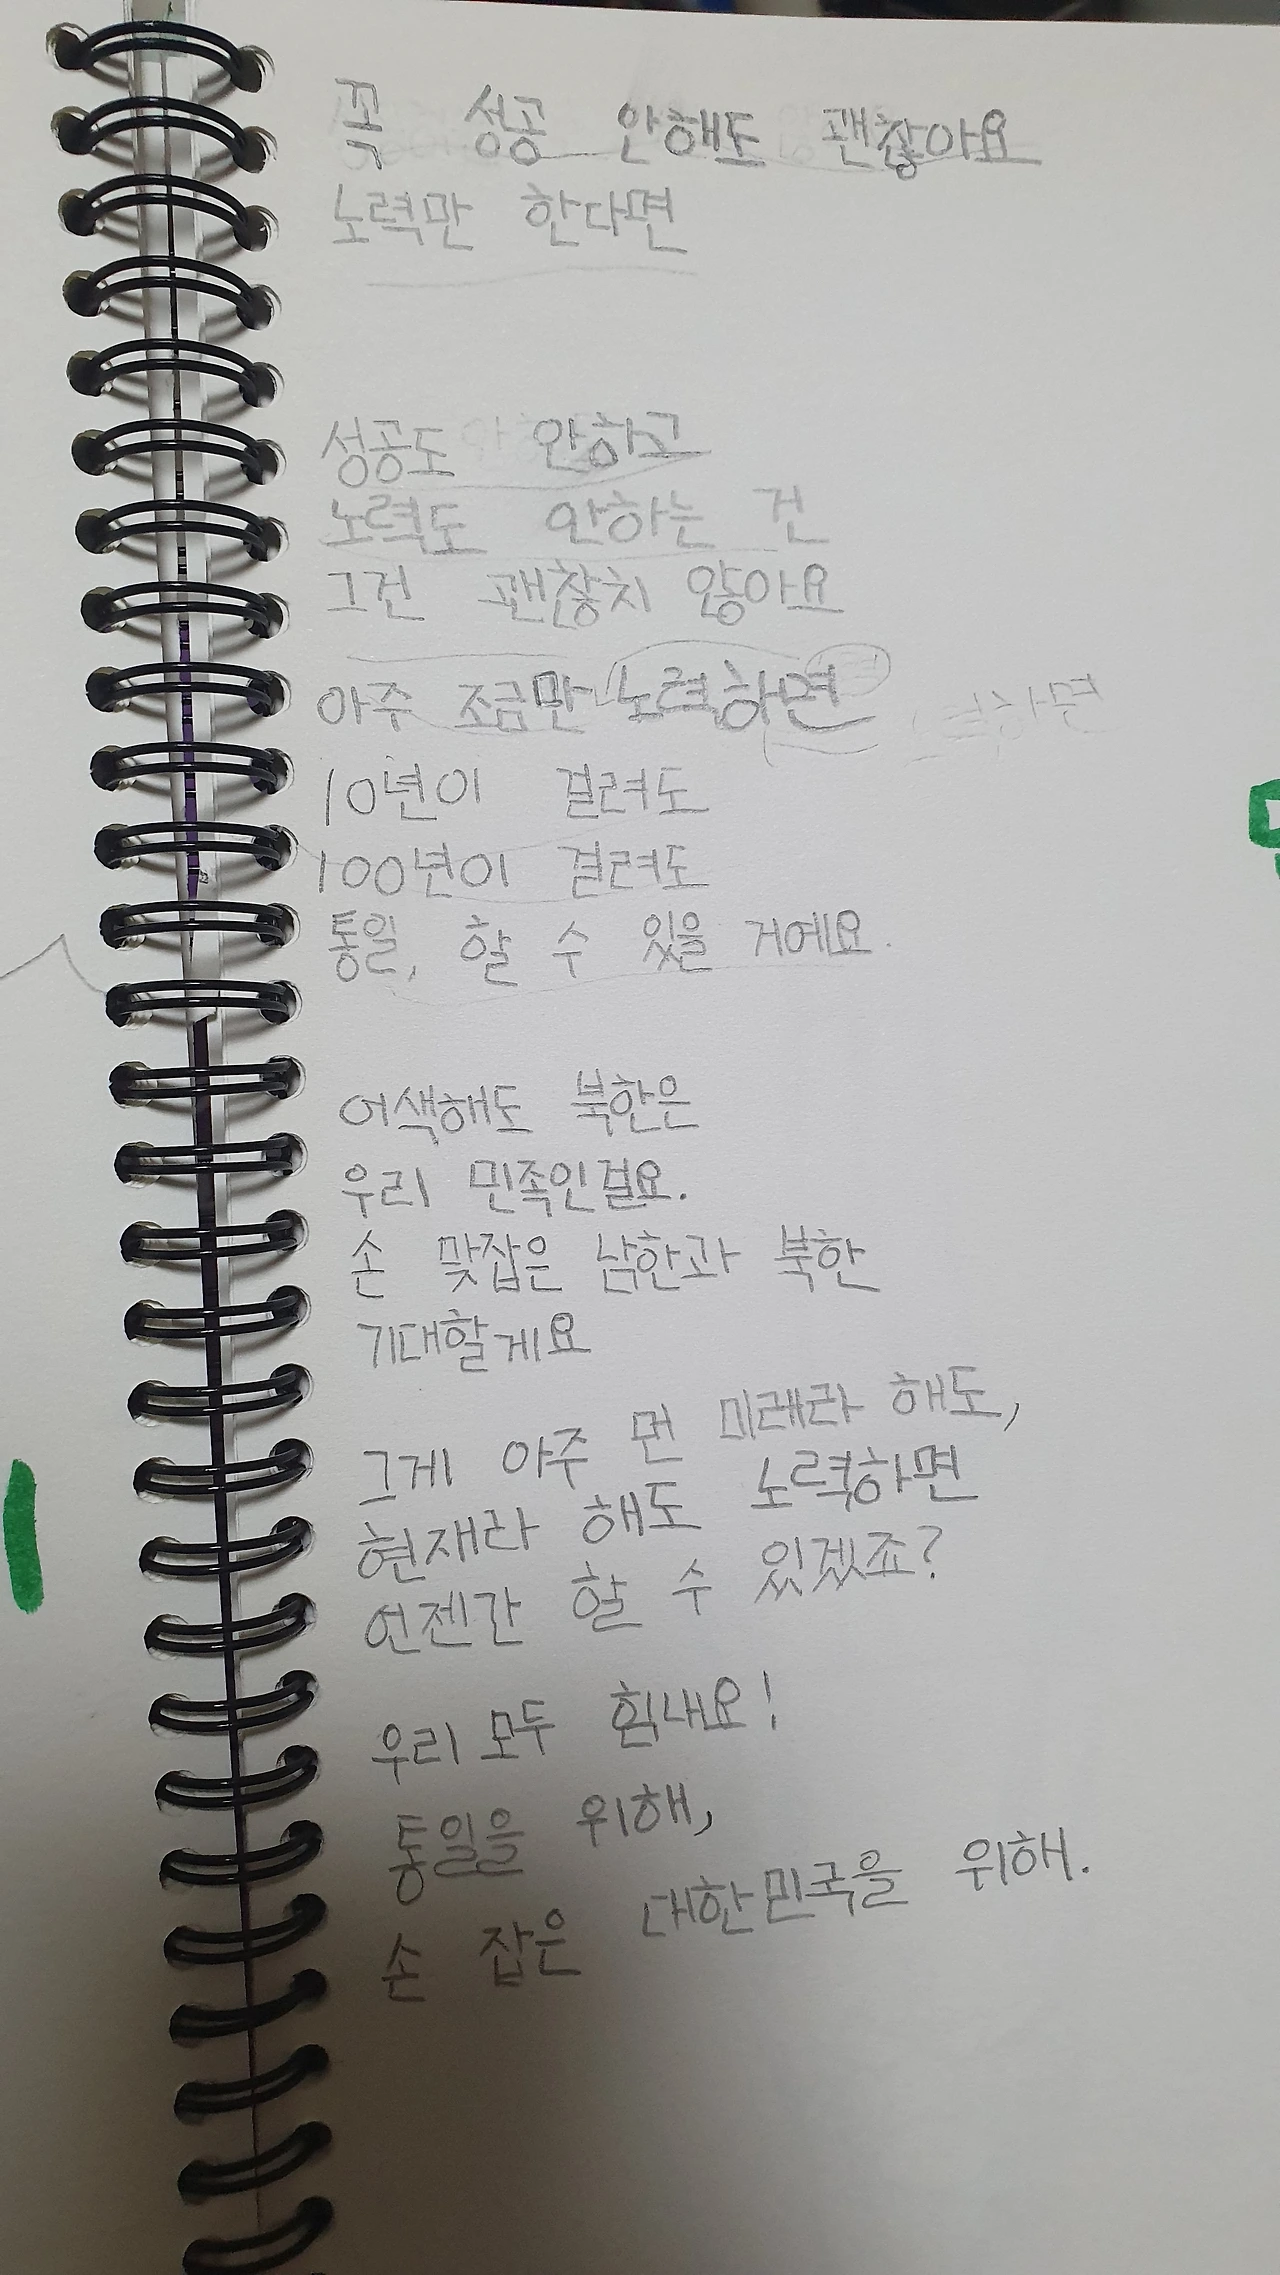 꼭 성공 안해도 괜찮아요
노력만 한다면
성공도 안하고
노력도 안하는 건
그건 괜찮치 않아요
아주 조금만 노력하면
10년이 걸려도
100년이 걸려도
통일, 할 수 있을 거예요.
어색해도 북한은
우리 민족인걸요.
손 맞잡은 남한과 북한
기대할게요
그게 아주 먼 미래라 해도,
현재라 해도 노력하면
언젠간 할 수 있겠죠?
우리 모두 힘내요!
통일을 위해,
손 잡은 대한민국을 위해.